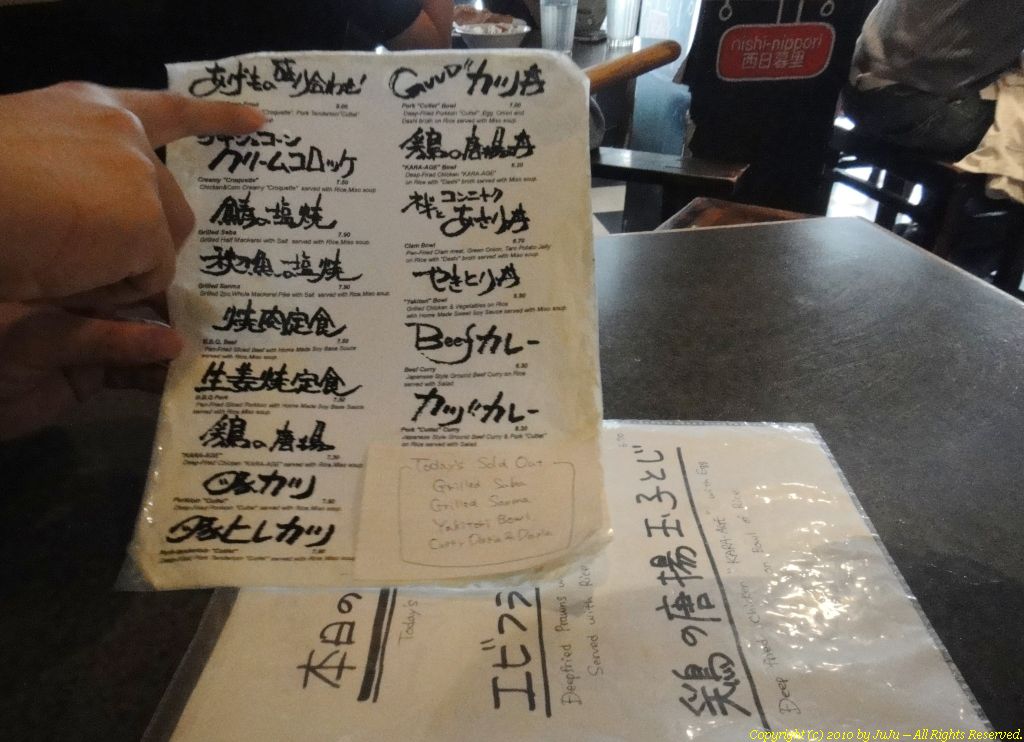 nishi-nippori
西日暮里
あげもの盛り合わせ
9.00
"Croquette", Pork Tenderloin "Cutlet"
クリームコロッケ
Creamy "Croquette" 7.50
Chicken&Corn Creamy "Croquette" served with Rice,Miso soup
鯖の塩焼
Grilled Saba 7.90
Grilled Half Mackerel with Salt served with Rice,Miso soup
秋刀魚の塩焼
Grilled Sanma 7.90
Grilled 2pc.Whole Mackerel Pike with Salt served with Rice,Miso soup
焼肉定食
B.B.Q. Beef 7.50
Pan-Fried Sliced Beef with Home Made Soy Base Sauce
served with Rice,Miso soup
生姜焼定食
B.B.Q.Pork
Pan-Fried Sliced Porkloin with Home Made Soy Base Sauce
served with Rice,Miso soup
鶏の唐揚
"KARA-AGE" 7.30
Deep-Fried Chicken "KARA-AGE" served with Rice,Miso soup
カツ
Porkloin "Cutlet" 7.90
Deep-Fried Porkloin "Cutlet" served with Rice,Miso soup
ヒレカツ
Pork-tenderloin "Cutlet" 7.90
Deep-Fried Pork Tenderloin "Cutlet" served with Rice,Miso soup
カツ丼
Pork "Cutlet" Bowl 7.00
Deep-Fried Porkloin "Cutlet", Egg, Onion and
Dashi broth on Rice served with Miso soup
鶏の唐揚丼
"KARA-AGE" Bowl 6.20
Deep-Fried Chicken "KARA-AGE"
on Rice with "Dashi" broth served with Miso soup
あさり丼
Clam Bowl 6.70
Pan-Fried Clam meat, Green Onion, Taro Potato Jelly
on Rice with "Dashi" broth served with Miso soup
やきとり丼
"Yakitori" Bowl 6.90
Grilled Chicken & Vegetables on Rice
with Home Made Sweet Soy Sauce served with Miso soup
Beefカレー
Beef Curry 6.30
Japanese Style Ground Beef Curry on Rice
served with Salad
カツカレー
Pork "Cutlet" Curry 8.30
Japanese Style Ground Beef Curry & Pork "Cutlet"
on Rice served with Salad
Today's Sold Out
Grilled Saba
Grilled Sanma
Yakitori Bowl
本日の
Today's
エビフラ
Deepfried Prawns
Served with Rice
鶏の唐揚玉子とじ
Deep fried Chicken "KARA-AGE" with Egg
on Bowl of Rice
Copyright (c) 2010 by JuJu – All Rights Reserved.